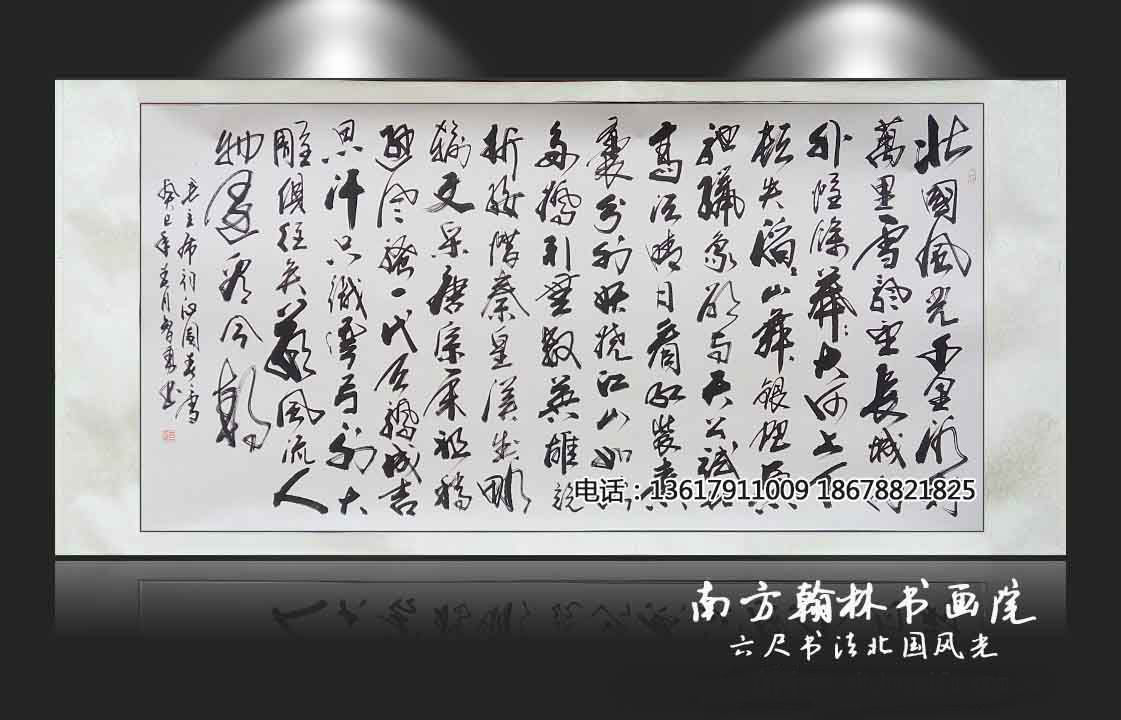 北國風光千里冰封
萬里雪飄望長城内
外惟餘莽:大河上下
頓失滔:山舞銀蛇原
馳蠟象欲与天公試比
高须晴日看红装素
裹分外妖娆江山如此
多嬌引無數英雄競
折腰惜秦皇漢武略
输文采唐宗宋祖稍
逊風騷一代天骄成吉
思汗只識彎弓射大
雕俱往矣數風流人
物還看今朝
毛主席词沁園春雪
癸巳年春月
电话：13617911009 18678821825
南方翰林书画院
六尺书法北国风光